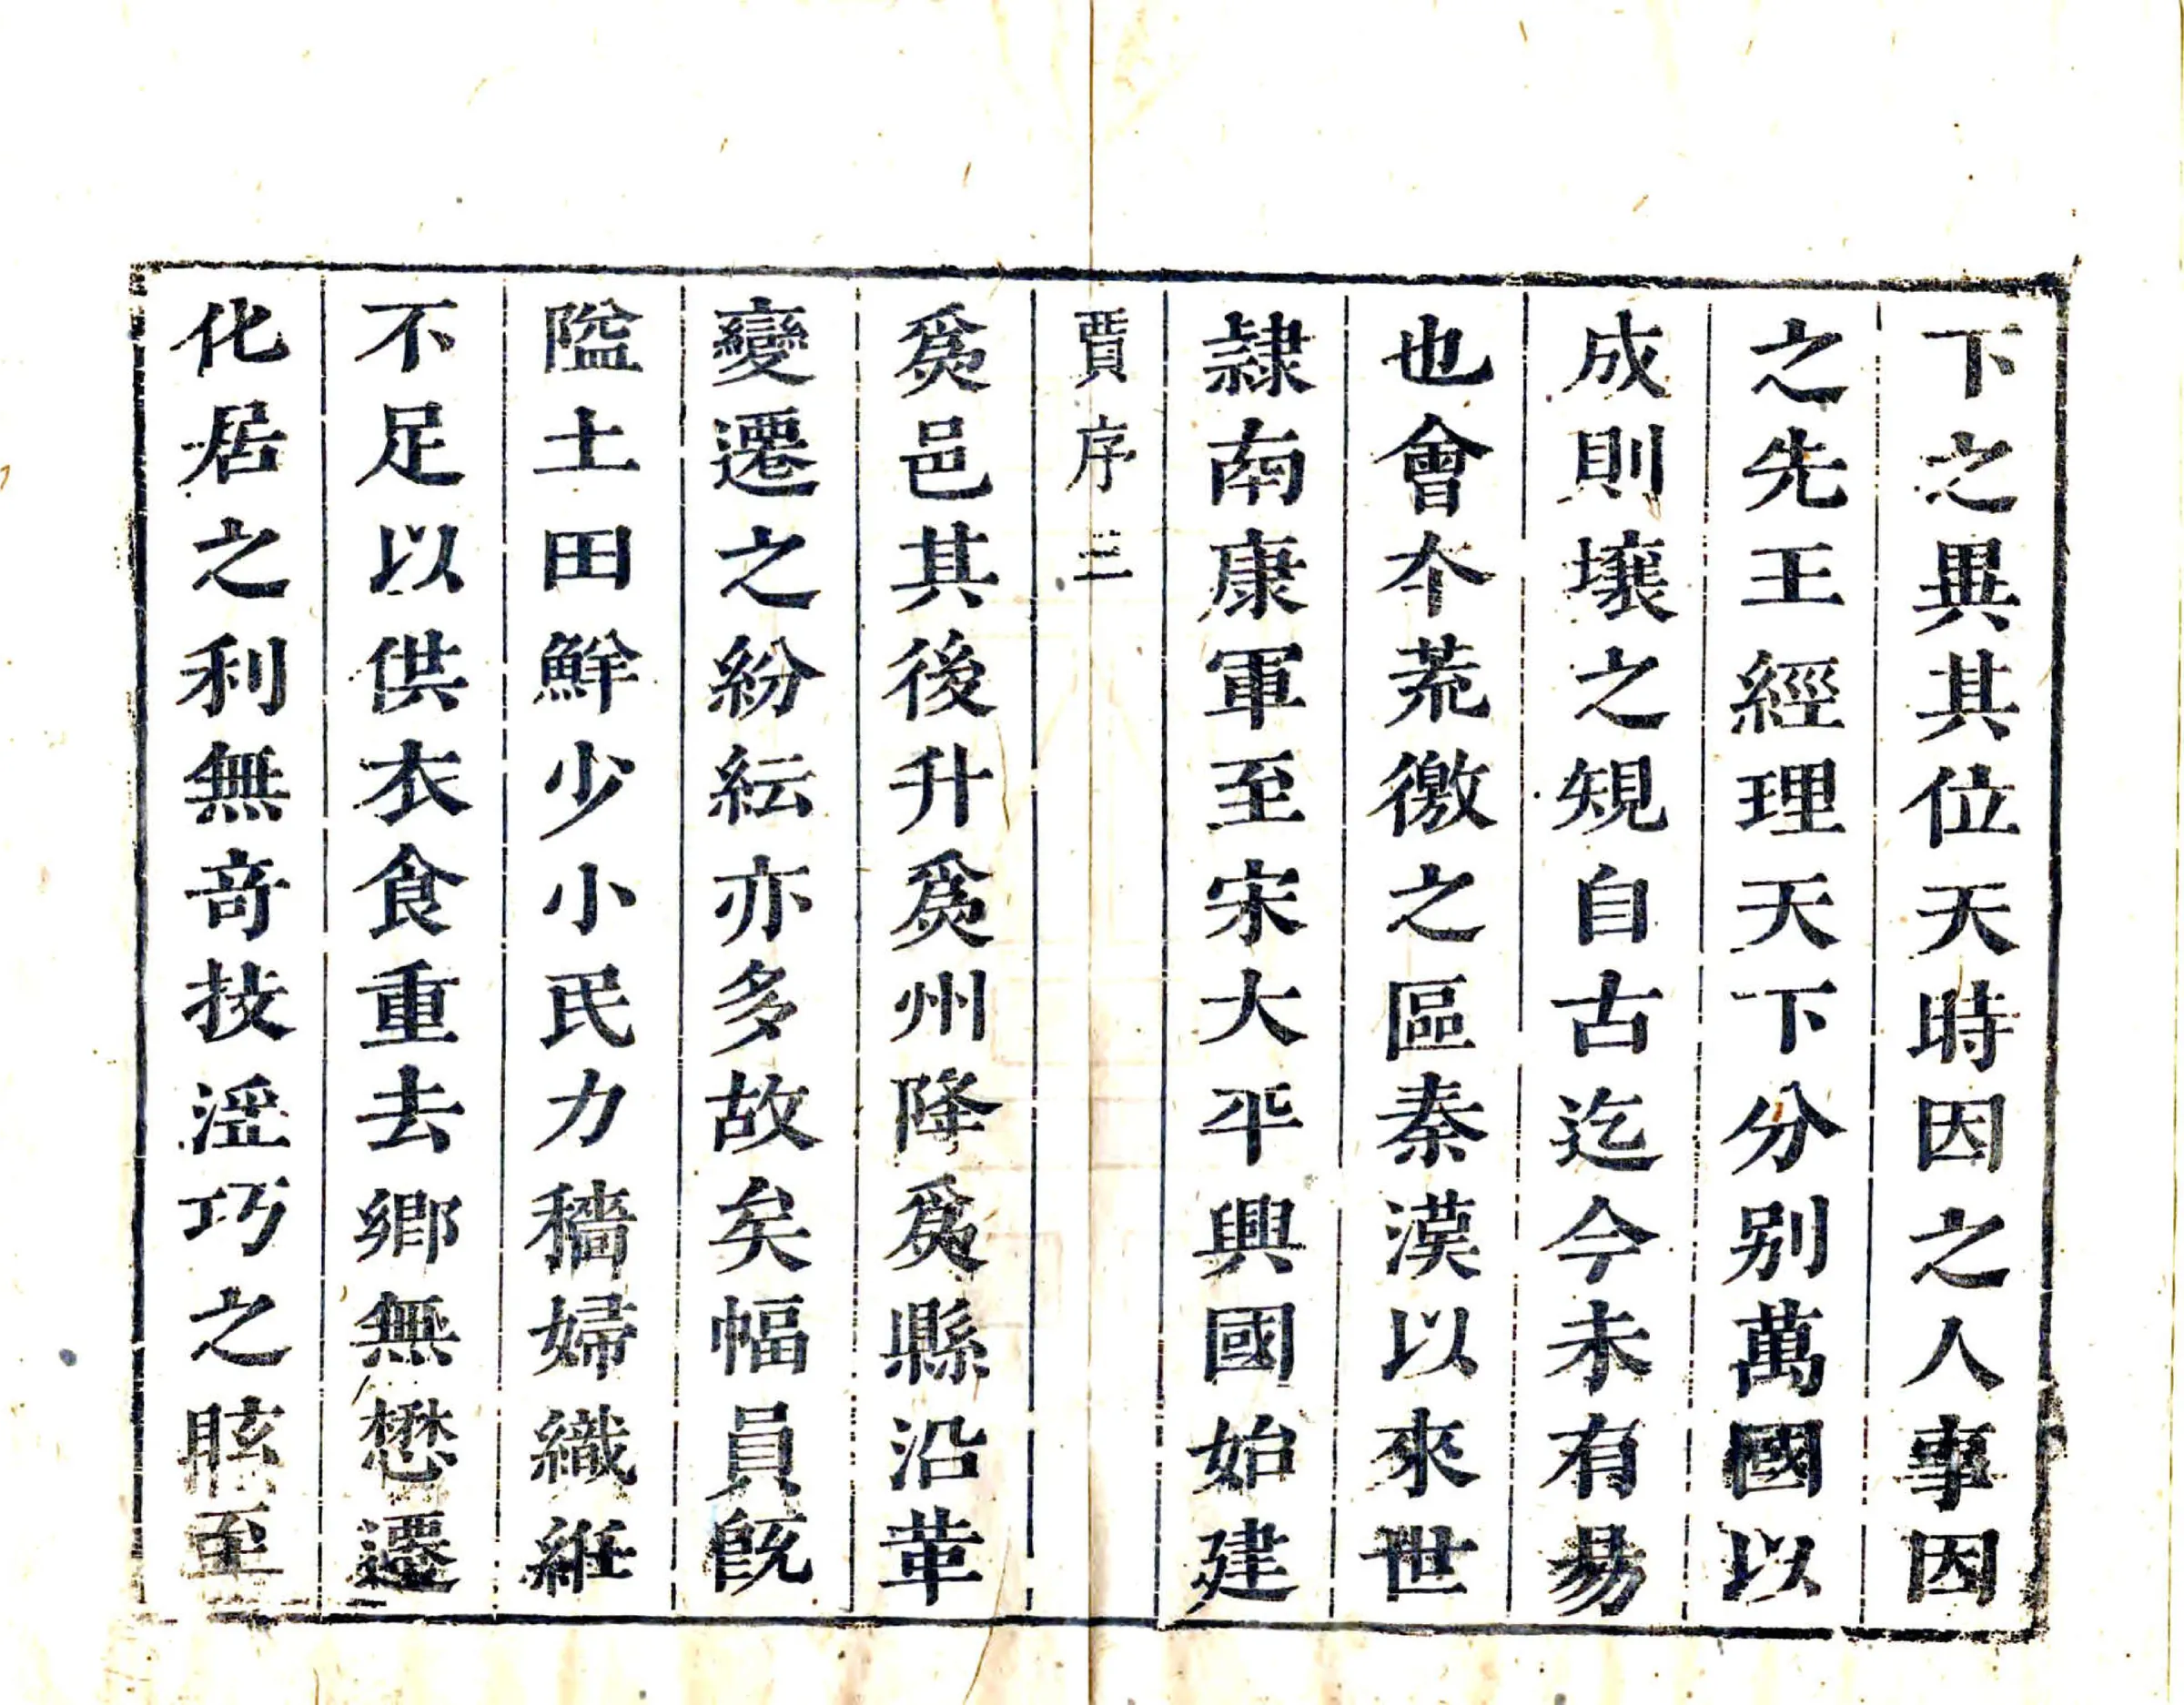 下之異其位天時因之人事因
之先王經理天下分别萬國以
成則壤之䂓自古迄今未有易
也會夲荒徼之區秦漢以來世
隷南康軍至宋大平興國始建
賈序 三
爲邑其後升爲州降爲縣沿革
變遷之紛紜亦多故矣幅員旣
隘土田鮮少小民力穡婦織絍
不足以供衣食重去鄉無懋遷
化居之利無竒技淫巧之眩至